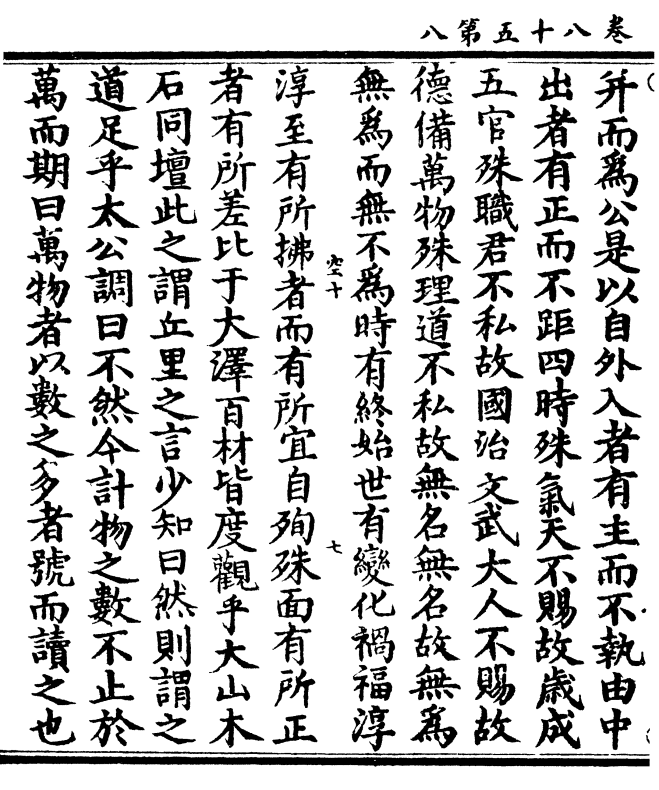 卷八十五第八
并而爲公是以自外入者有主而不執由中
出者有正而不距四時殊氣天不賜故歲成
五官殊職君不私故國治文武大人不賜故
德備萬物殊理道不私故無名無名故無爲
無爲而無不爲時有終始世有變化禍福淳
空十 七
淳至有所拂者而有所宜自殉殊面有所正
者有所差比于大澤百材皆度觀乎大山木
石同壇此之謂丘里之言少知曰然則謂之
道足乎太公調曰不然今計物之數不止於
萬而期曰萬物者以數之多者號而讀之也